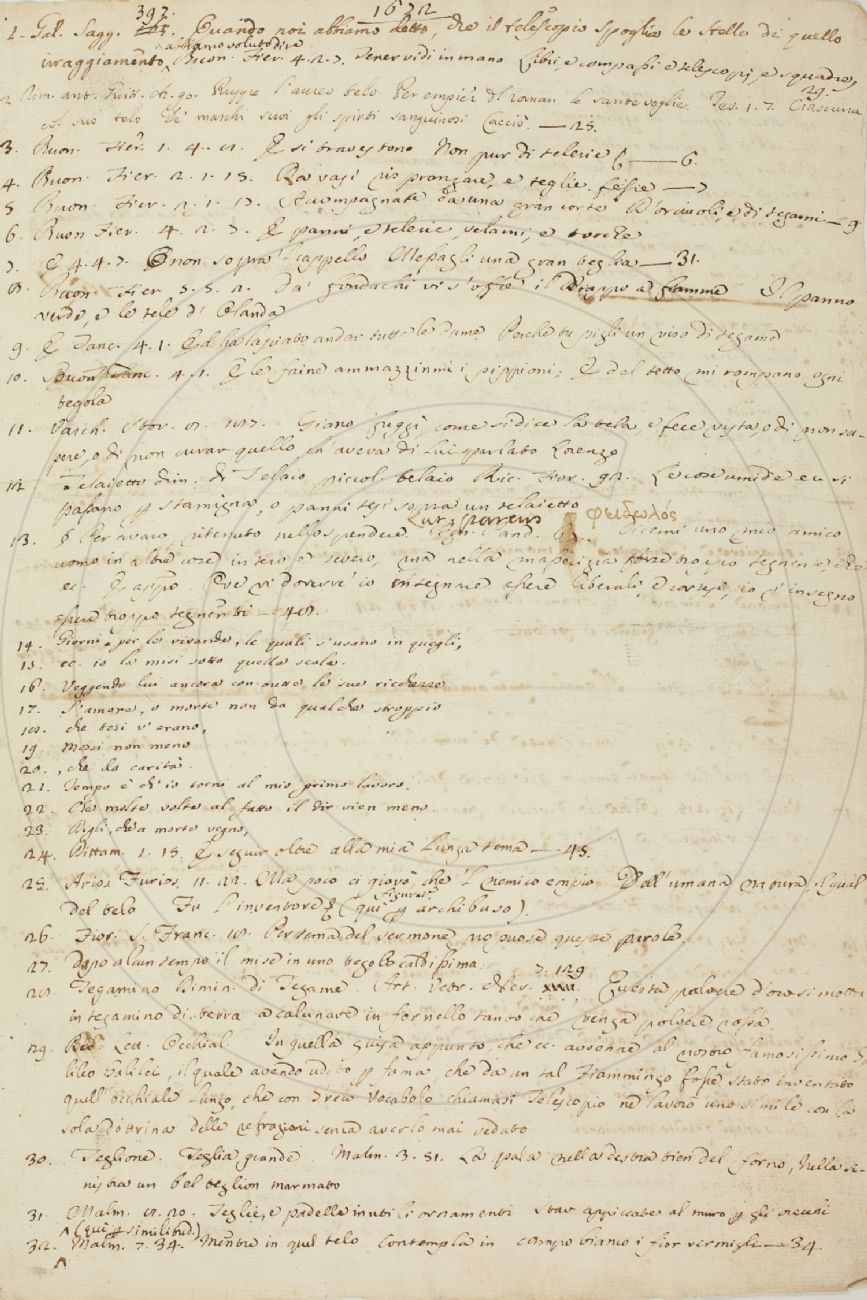 392. 1672
1. Gal. Sagg. Quando noi abbiamo detto, che il telescopio spoglia le stelle di quello
abbiamo voluto dire
irraggiamento, Buon. Fier. 4. 2. 7. Tener vidi in mano Libri, e compassi e telescopj, e squadre,
29.
2. Rim. ant. Guitt. 90. Ruppe l'aureo telo Per empier di Roman le sante voglie. Tes. 1. 7. Ciascuna
col suo telo De' maschi suoi gli spirti sanguinosi Cacciò. — 25.
3. Buon. Fier. 1. 4. 6. E si traveston Non pur di telerie — 6.
4. Buon. Fier. 2. 1. 15. Ra vasi pranzare, e teglie fesse — 7
5 Buon. Fier. 2. 1. 17. Accompagnate da una gran corte D'orciuoli, e di tegami — 9
6. Buon Fier. 4. 2. 7. E panni, e telerie, velami, e
7. E 4. 4. 7. O non sopra 'l cappello Mettergli una gran teglia — 31.
8. Buon. Fier 5. 5. 2. Da' fondachi vi s'offre il Drappo a fiamme Il panno
verde, e le tele di Olanda
9. E Tanc. 4. 1. Ed ha lasciato andar tutte le dame Perchè tu pigli un viso di tegame
10. Buon Tanc. 4. 1. E le faine ammazzinmi i pippioni; E del tetto mi rompano ogni
tegola
11. Varch. Stor. Giano fuggì, come si dice la tela, e fece vista, o di non sa-
pere, o di non curar quello, ch'aveva di lui sparlato Lorenzo
12. Telaietto dim. di Telaio piccol telaio Ric. Fior. 92. Le cose umide ec. si
passano p stamigna, o panni tesi sopra un telaietto
Lat. parcus φειδωλός
13. § Per avaro ritenuto nello spendere. And. 63. Dicemi uno mio amico
uomo in altre cose intero e severo, ma nella masserizia forse troppo tegnente, che
ec. E appo. Ove vi dovrei io insegnare essere liberali, e cortesi, io v'insegno
essere troppo tegnenti — 40.
14. Giorni, per le vivande, le quali s'usano in quegli,
15. ec. io la misi sotto quella scala.
16. Veggendo lui ancora con tutte le sue ricchezze
17. S'amore, o morte non da qualche stroppio
18. che tesi v'erano,
19. Messi non meno
20. , che la carità.
21. Tempo è ch'io torni al mio primo lavoro.
22. Che molte volte al fatto il dir vien meno.
23. Digli, ch'a morte vegno,
24. Dittam. 1. 15. E seguir oltre alla mia lunga tema — 45.
25. Arios. Furios. 11. 22. Ma poco ci giovò, che 'l nemico empio Dall' umana natura, il qual
figurat.
del telo Fu l'inventore (qui p archibuso).
26. Fior. S. Franc. 10. Per tema del sermone propuose queste parole.
27. Dopo alcun tempo il mise in uno tegolo caldissima.
7. 129
28. Tegamino Dimin. di Tegame. Art. Vetr. Ner. Questa polvere d'oro si metta
in tegamino di terra a calcinare in fornello tanto che venga polvere rossa.
29. Red. Lett. Occhial. In quella guisa appunto, che ec. avvenne al nostro famosissimo Ga-
lileo Galilei, il quale avendo udito p fama, che da un tal Fiammingo fosse stato inventato
quell'occhiale lungo, che con Greco vocabolo chiamasi Telescopio ne lavorò uno simile con la
sola dottrina delle refrazioni senza averlo mai veduto
30. Teglione. Teglia grande. Malm. 3. 51. La pala nella destra tien del forno, Nella si-
nistra un bel teglion marmato
31. Malm. 6. 20. Teglie, e padelle inutili ornamenti Star appiccate al muro p gli orecchi
(qui p similitud.)
32. Malm. 7. 34. Mentre in quel telo contempla in campo bianco i fior vermigli — 34.